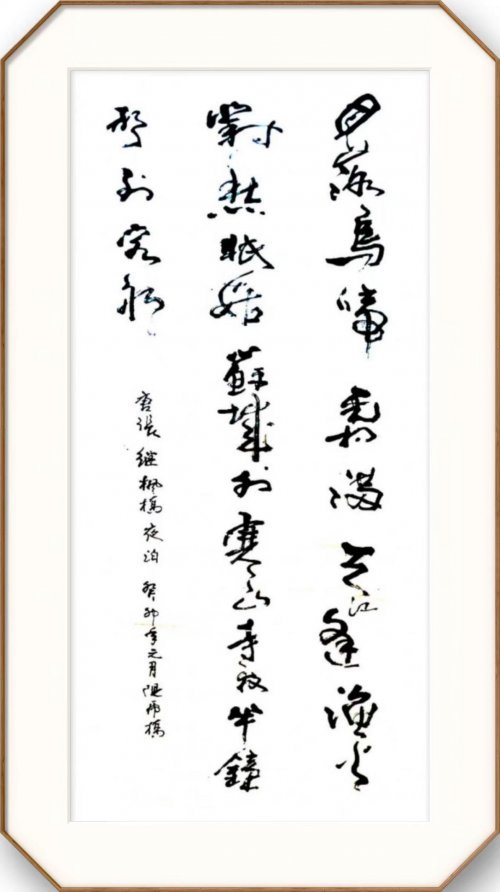 月落烏啼霜滿天江逢漁火
對愁眠姑蘇城外寒山寺夜半鐘
聲到客船
唐張继楓橋夜泊 癸卯年元月